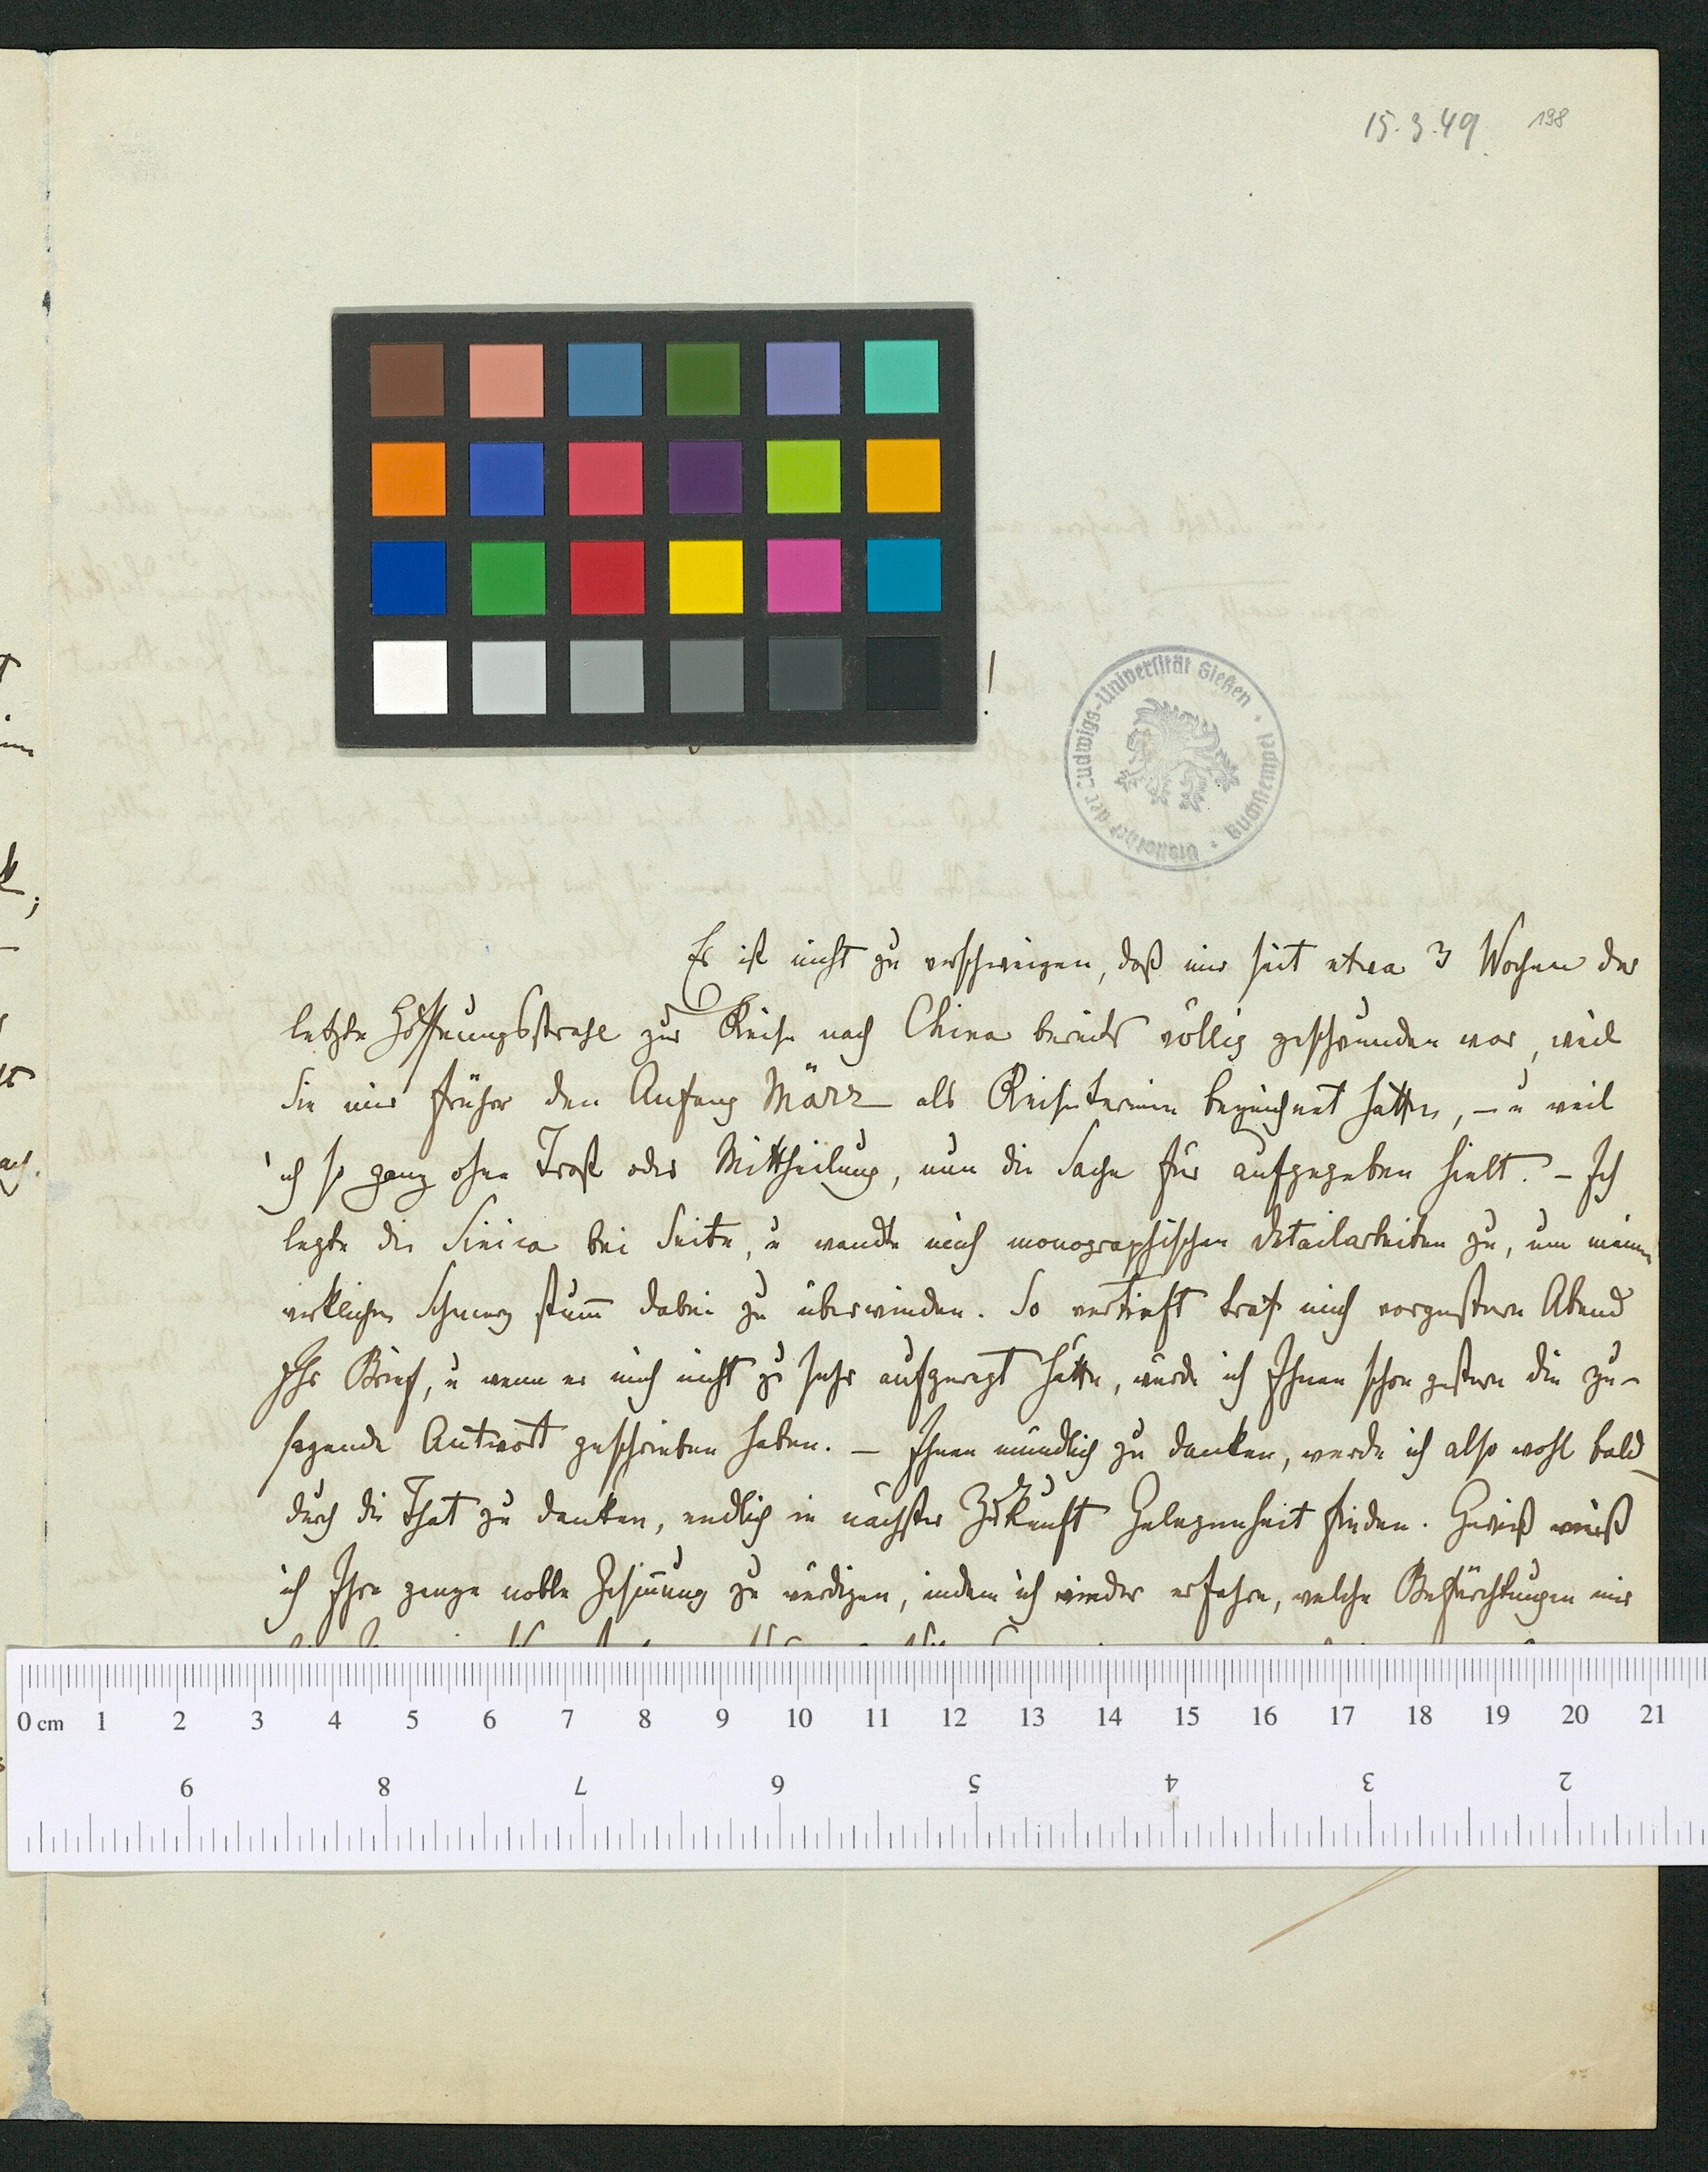 15.3.49 198
!
Bibliothek der Ludwigs-Universität Gießen · Buchstempel
Es ist nicht zu verschweigen, daß mir seit etwa 3 Wochen der
letzte Hoffnungsstrahl zur Reise nach China bereits völlig geschwunden war, weil
Sie mir früher den Anfang März als Reisetermin bezeichnet hatten, – u weil
ich so ganz ohne Trost oder Mittheilung, nun die Sache für aufgegeben hielt. – Ich
legte die Sinica bei Seite, u wandte mich monographischen Detailarbeiten zu, um meinen
wirklichen Schmerz stum̅ dabei zu überwinden. So vertieft traf mich vorgestern Abend
Ihr Brief, u wenn er mich nicht zu sehr aufgeregt hätte, würde ich Ihnen schon gestern die zu-
sagende Antwort geschrieben haben. – Ihnen mündlich zu danken, werde ich also wohl bald
durch die That zu danken, endlich in nächster Zukunft Gelegenheit finden. Gewiß weiß
ich Ihre ganze noble Gesin̅ung zu würdigen, indem ich wieder erfahre, welche Befürchtungen mir
0 cm 1 2 3 4 5 6 7 8 9 10 11 12 13 14 15 16 17 18 19 20 21
9 8 7 6 5 4 3 2